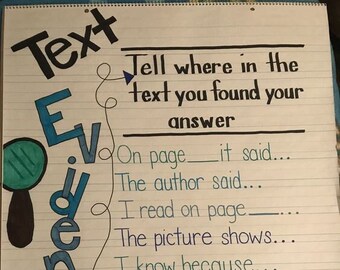 Text
Eviden
Tell where in the
text you found your
answer
On page___it said...
The author said...
I read on page____...
The picture shows...
I know because...